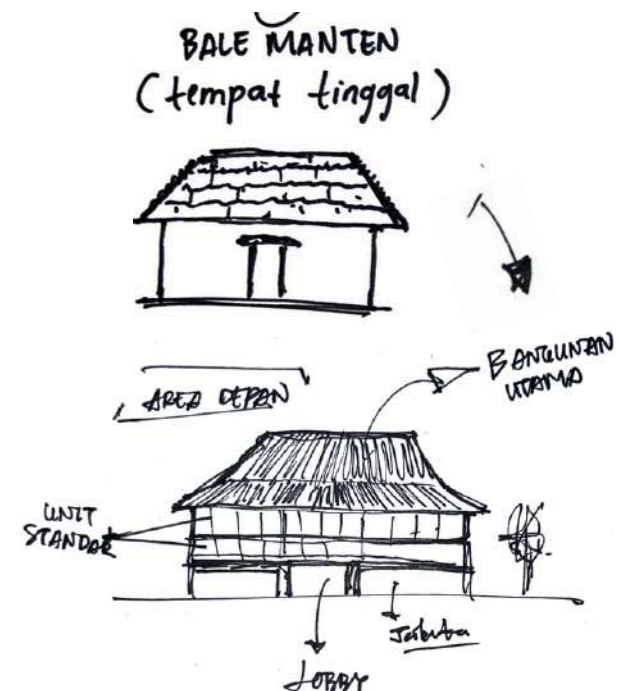 BALE MANTEN
(tempat tinggal)
AREA DEPAN
BANGUNAN
UTAMA
UNIT
STANDAR
LOBBY